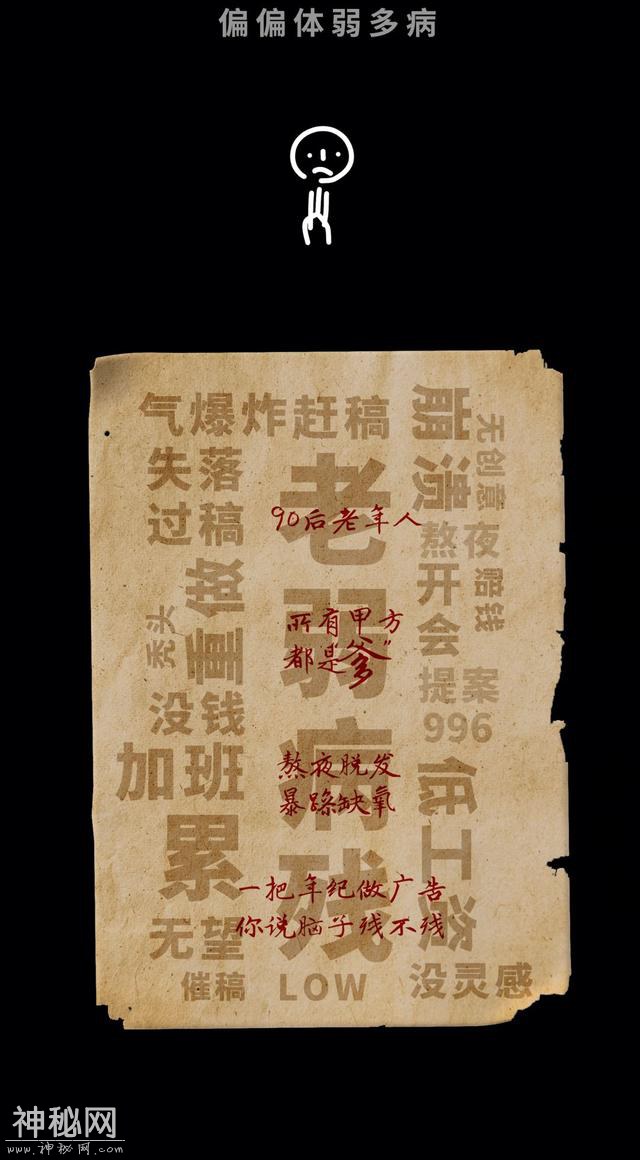 偏偏体弱多病
气爆炸赶稿
崩溃
无创意
失落
过稿
老弱病残
90后老年人
熬夜
重做
开会
赔钱
秃头
所有甲方
都是“爹”
提案
996
没钱
加班
熬夜脱发
暴躁缺氧
低工资
累
一把年纪做广告
你说脑子残不残
无望
催稿
LOW
没灵感
神秘网
www.神秘网.com